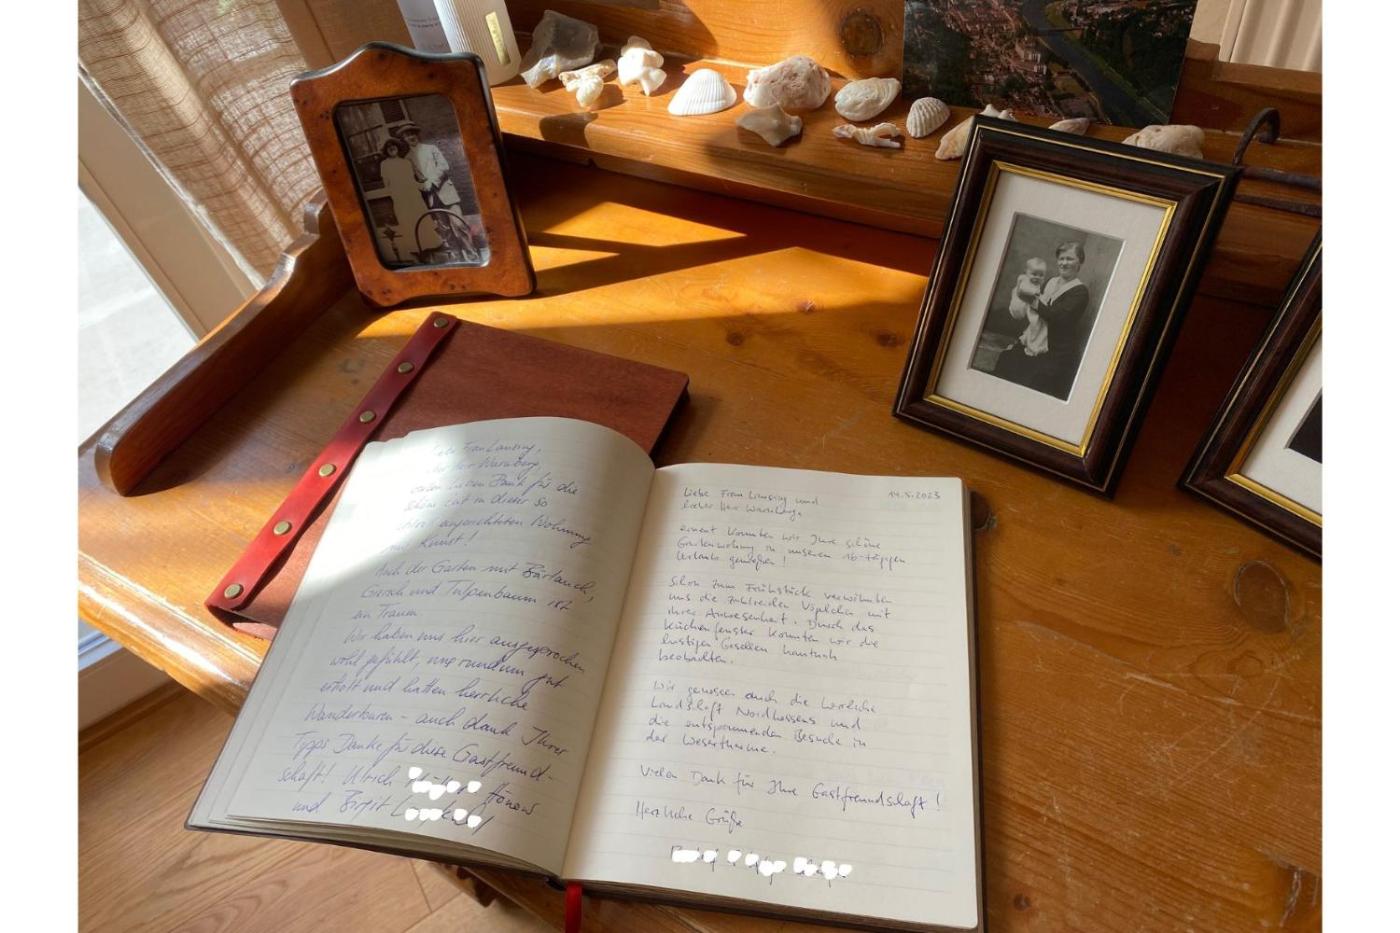 Frau Lansing,
Herr Warnberg,
vielen lieben Dank für die
schöne Zeit in dieser so
ausgerichteten Wohnung
mit Kunst!
Auch der Garten mit Bärlauch,
Giersch und Tulpenbaum ist
ein Traum
Wir haben uns hier ausgesprochen
wohl gefühlt, uns rundum gut
erholt und hatten herrliche
Wandertouren – auch dank Ihrer
Tipps Danke für diese Gastfreund-
schaft! Ulrich Hönow
und Birgit
14.5.2023
Liebe Frau Lansing und
lieber Herr
erneut konnten wir Ihre schöne
Gartenwohnung in unseren 16-tägigen
Urlaub genießen!
Schon zum Frühstück verwöhnten
uns die zahlreichen Vöglchen mit
ihrer Anwesenheit. Durch das
Küchenfenster konnten wir die
lustigen Gesellen hautnah
beobachten.
Wir genossen auch die herrliche
Landschaft Nordhessens und
die entspannenden Besuche in
der Wesertherme.
Vielen Dank für Ihre Gastfreundschaft!
Herzliche Grüße